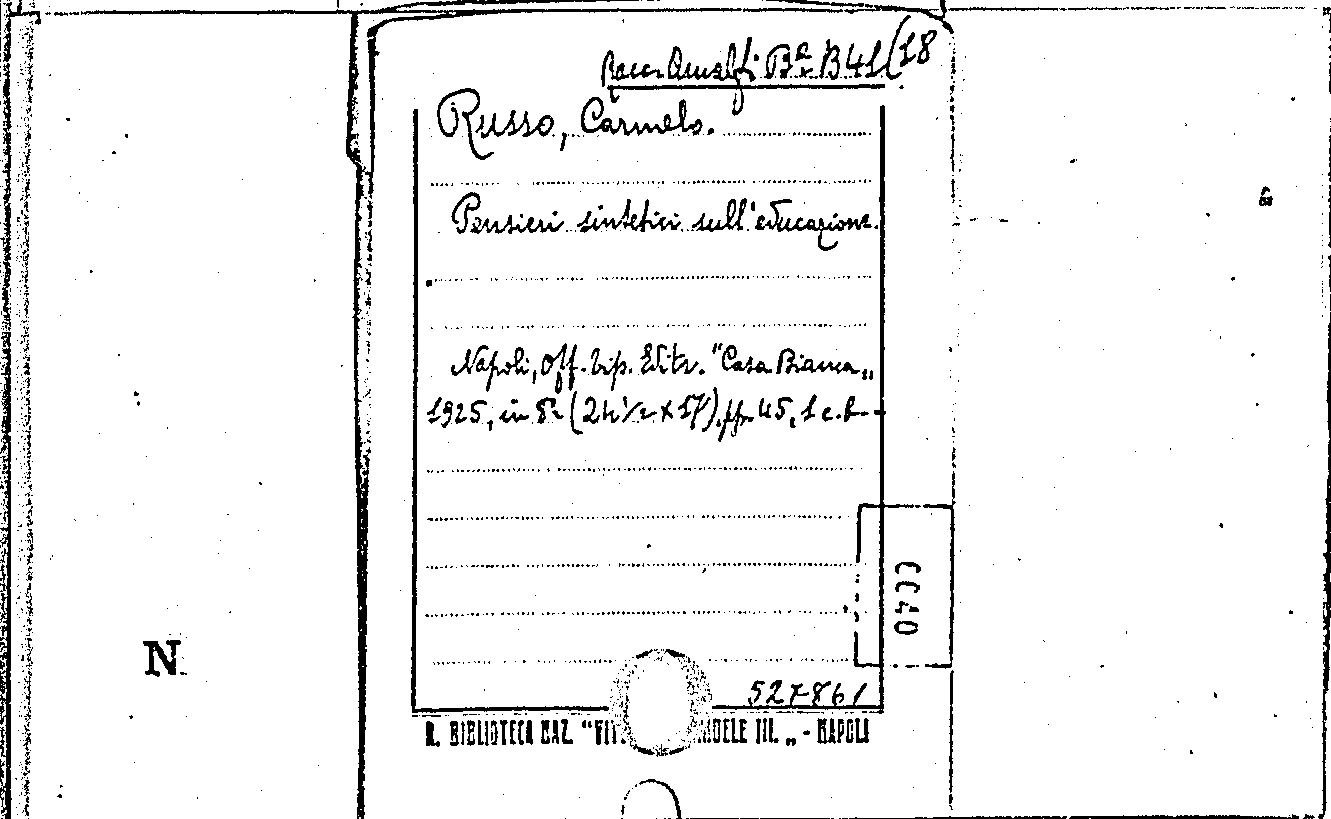 Racc. Amalfi Bª B 41(18
Russo, Carmelo.
Pensieri sintetici sull'educazione.
Napoli, Off. Tip. Editr. "Casa Bianca„
1925, in 8º (24 ½ x 17), pp. 45, 1 c. b.-
CC40
N
527861
R. BIBLIOTECA NAZ. "VIT. MUELE III. „ - NAPOLI